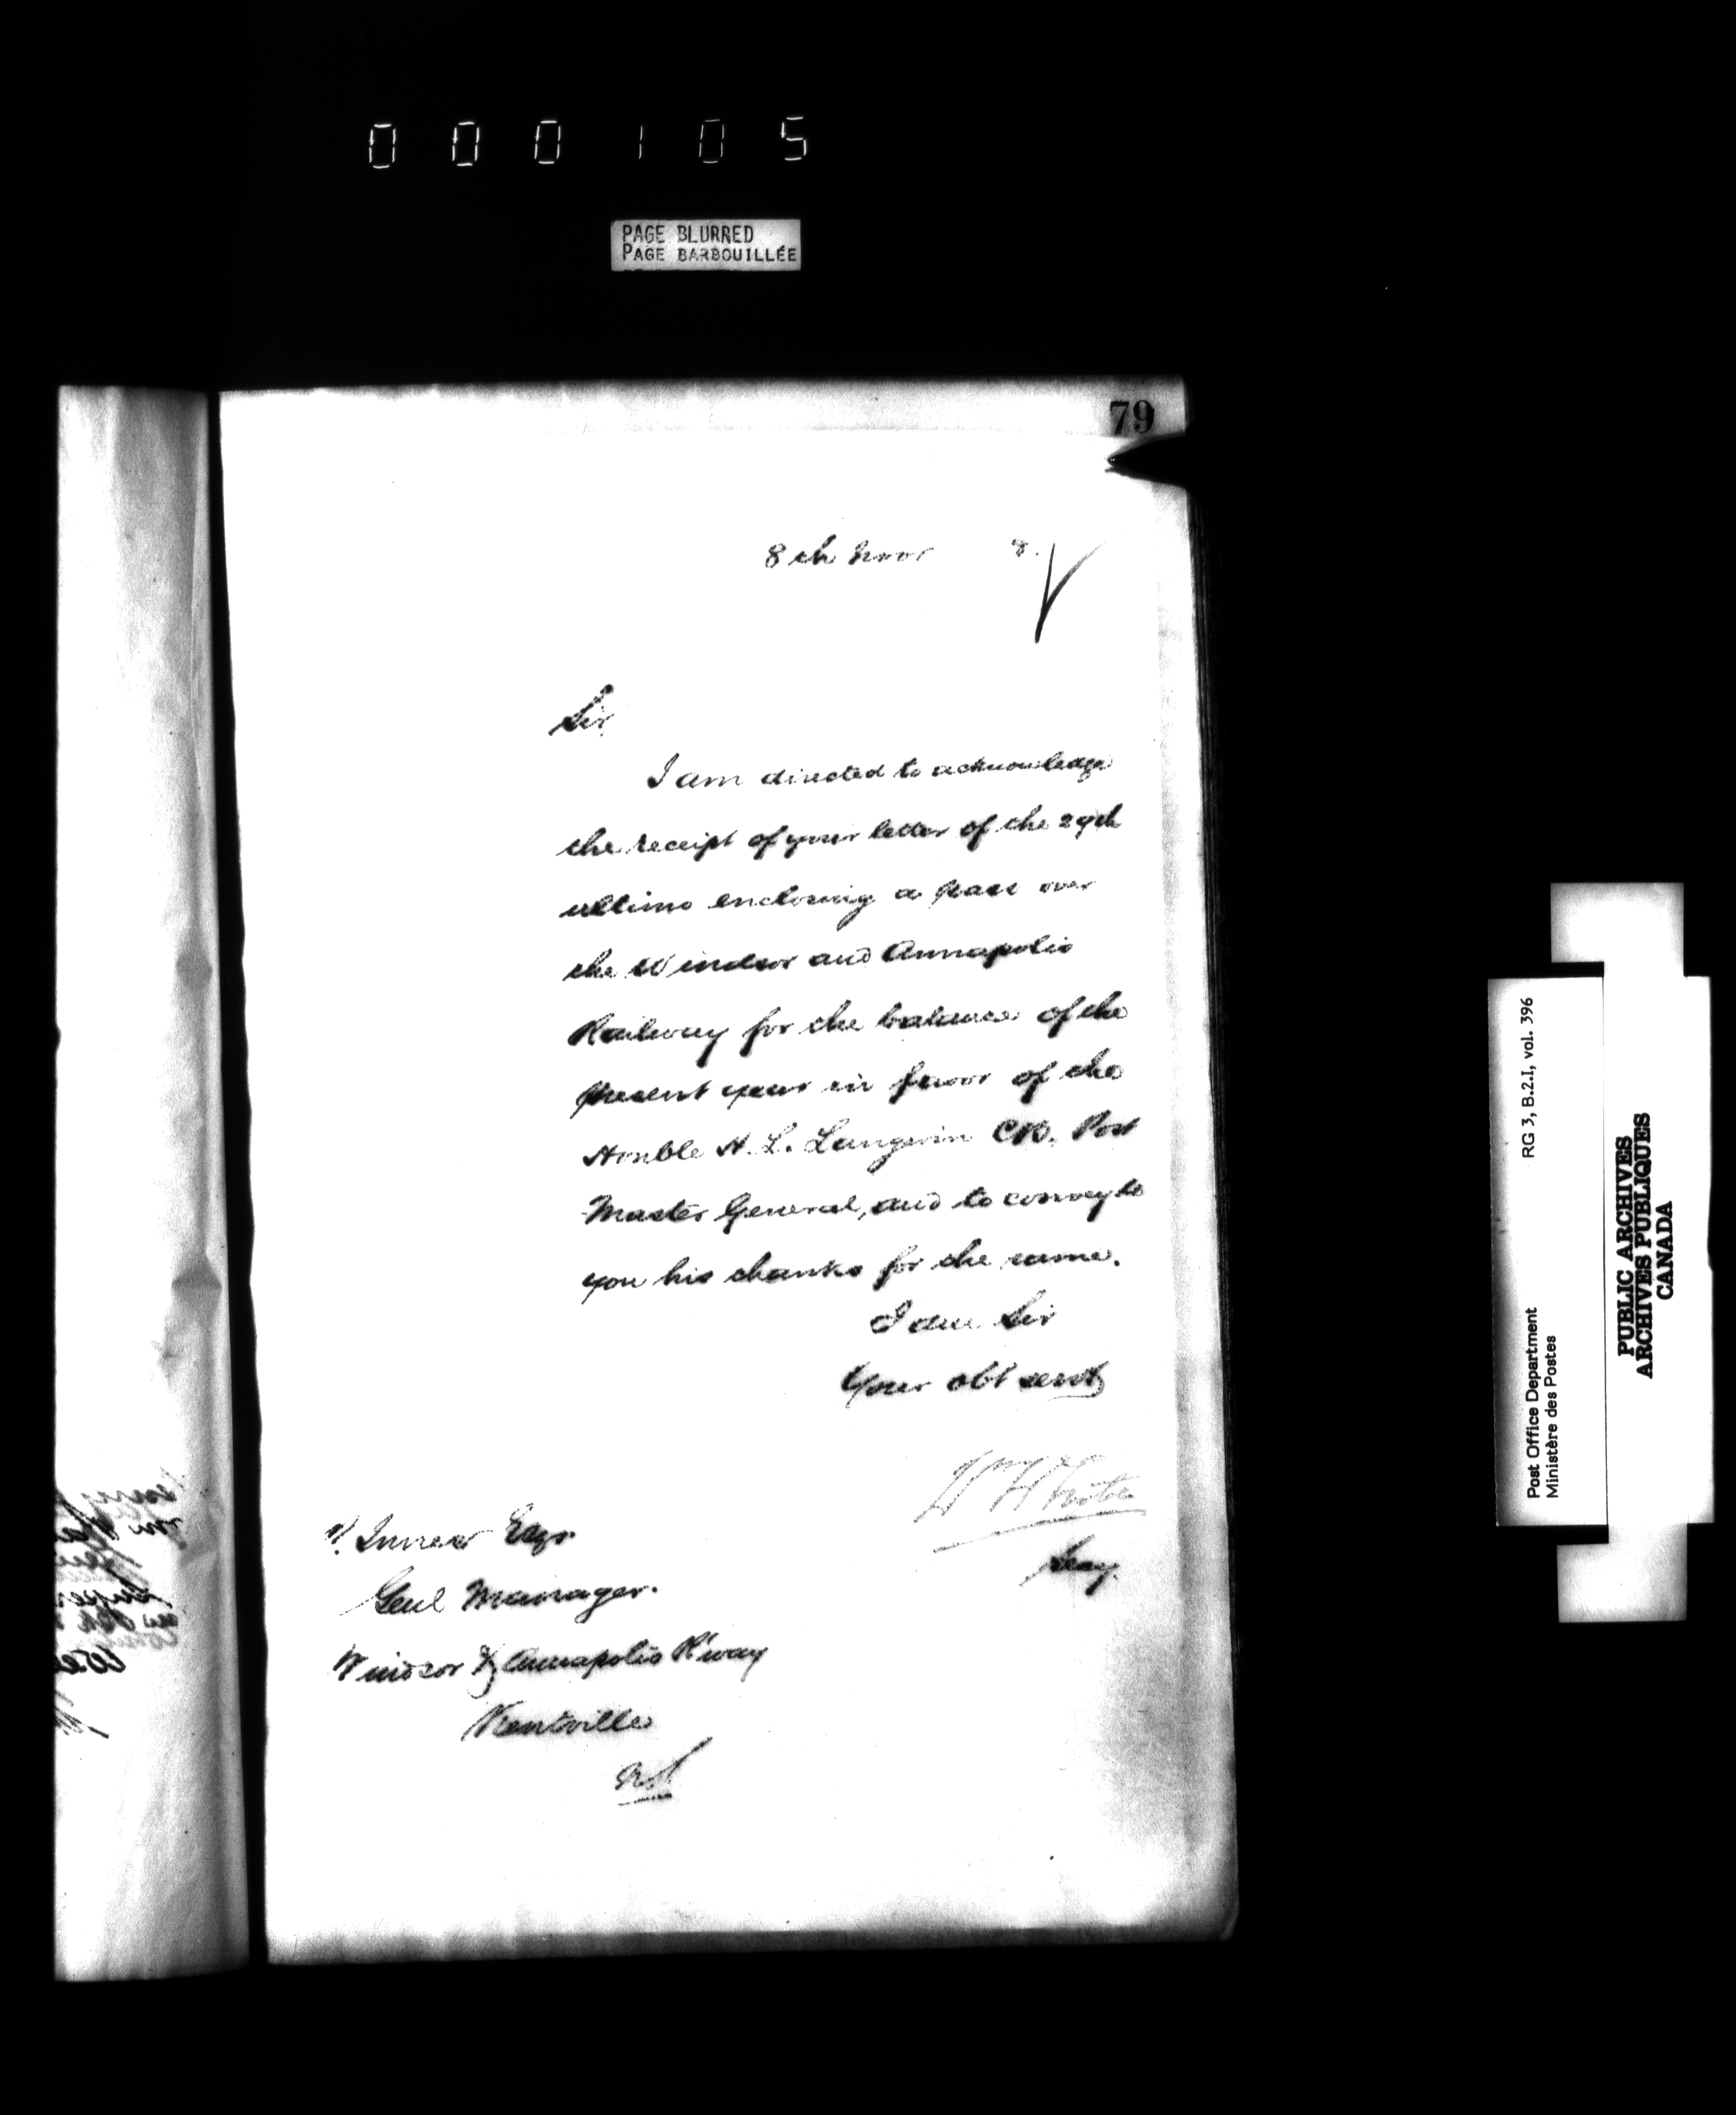 000105
PAGE BLURRED
PAGE BARBOUILLÉE
79
8th Novr 8.
Sir,
I am directed to acknowledge
the receipt of your letter of the 29th
ultimo enclosing a pass over
the Windsor and Annapolis
Railway for the balance of the
present year in favor of the
Honble H. L. Langevin CB. Post
Master General, and to convey to
you his thanks for the same.
I am Sir
Your obt servt
Wm H White
Secy.
P. Innes Esqr
Genl Manager.
Windsor & Annapolis R'way
Kentville
NS
RG 3, B.2.I, vol. 396
Post Office Department
Ministère des Postes
PUBLIC ARCHIVES
ARCHIVES PUBLIQUES
CANADA